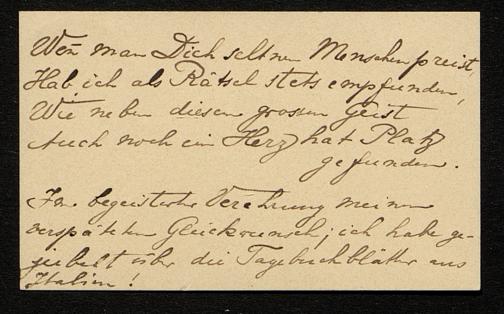 Wen̄ man Dich seltnen Menschen preist,
Hab ich als Rätsel stets empfunden,
Wie neben diesem grossen Geist
Auch noch ein Herz hat Platz
gefunden.
In begeisterter Verehrung meinen
verspäteten Glückwunsch; ich habe ge-
jubelt über die Tagebuchblätter aus
Italien!